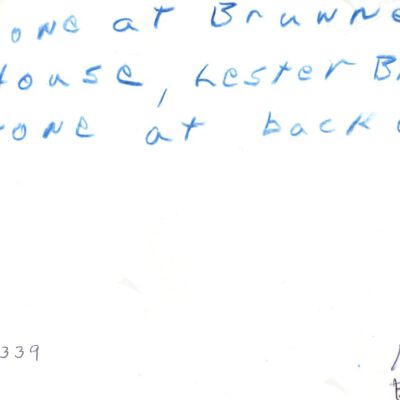 one at Brunne
ouse, Lester B
one at back
339